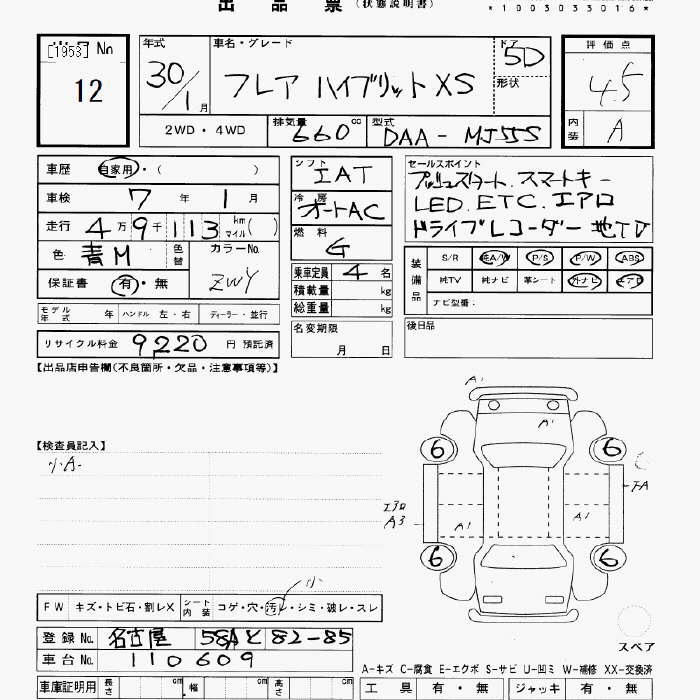 出品票 (状態説明書)
*1003033016*
[1953] No
12
年式 30/1月
車名・グレード フレア ハイブリット XS
ドア 5D
形状
評価点 4.5
内装 A
2WD・4WD
排気量 660 cc
型式 DAA-MJ55S
車歴 自家用・( )
車検 7年 1月
走行 4万9千113 km マイル( )
色 青M 色替
カラーNo. ZWY
保証書 有・無
モデル年式 年 ハンドル 左・右 ディーラー・並行
リサイクル料金 9,220 円 預託済
シフト IAT
冷房 オートAC
燃料 G
乗車定員 4 名
積載量 kg
総重量 kg
名変期限
月 日
セールスポイント
プッシュスタート.スマートキー
LED.ETC.エアロ
ドライブレコーダー 地TV
装備品
S/R 純A/W P/S P/W ABS
純TV 純ナビ 革シート 外ナビ エアロ
ナビ型番:
後日品
【出品店申告欄(不良箇所・欠品・注意事項等)】
【検査員記入】
小A
A1
A1
6
6
エアロ
A3
A1
A1
6
6
スペア
FW キズ・トビ石・割レX
シート内装 コゲ・穴・汚レ・シミ・破レ・スレ
小
登録No. 名古屋 58A と 82-85
車台No. 110609
車庫証明用 長さ cm 幅 cm 高さ cm
A-キズ C-腐食 E-エクボ S-サビ U-凹ミ W-補修 XX-交換済
工具 有・無 ジャッキ 有・無